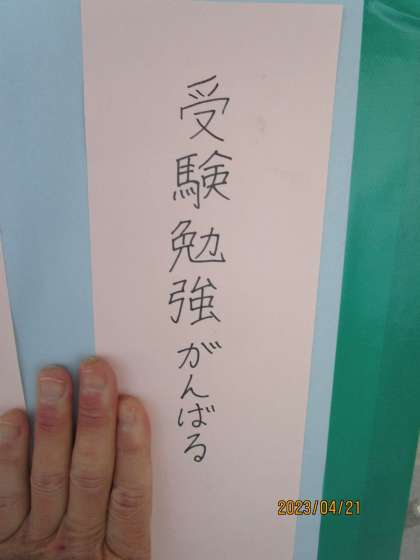 受験勉強がんばる
2023/04/21